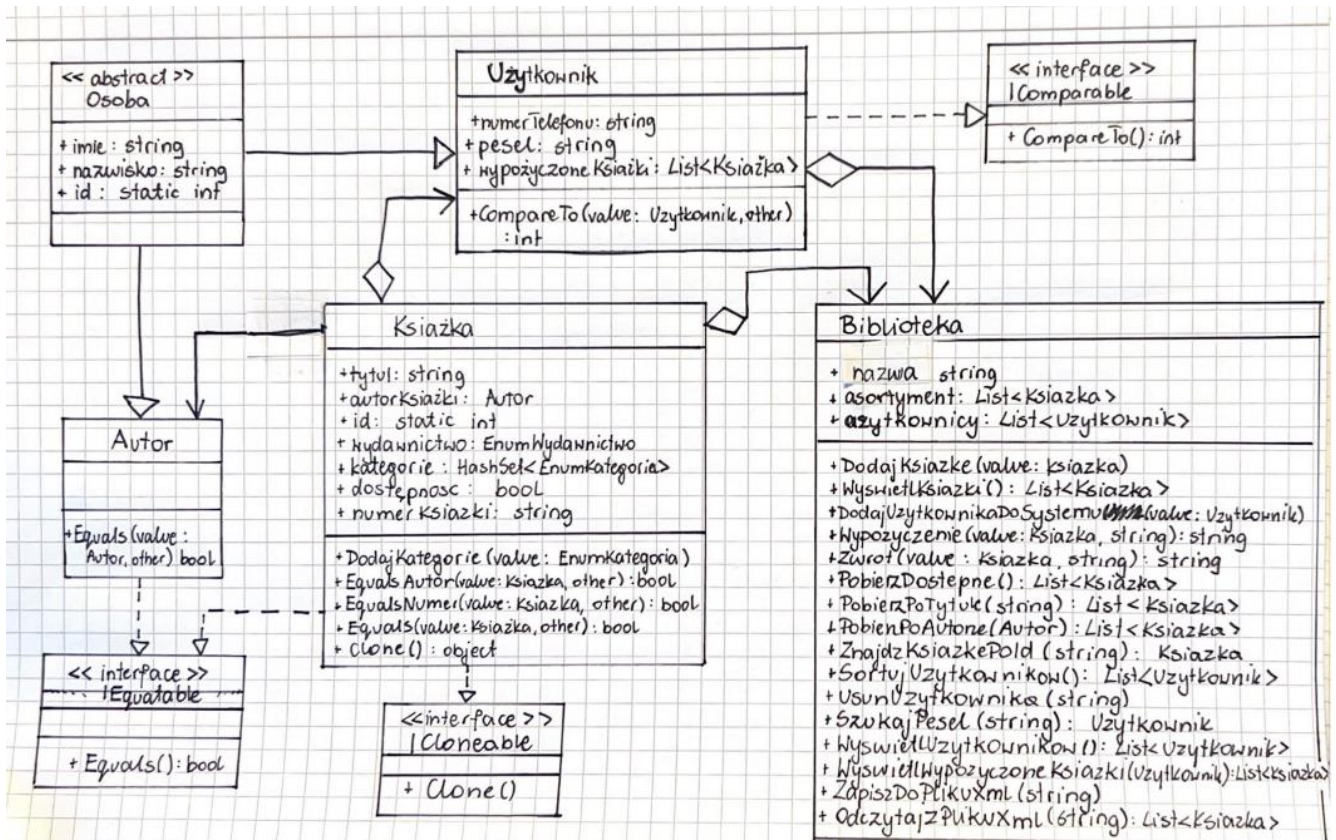 << abstract >>
Osoba
+ imie : string
+ nazwisko: string
+ id : static int
Użytkownik
+numerTelefonu: string
+ pesel: string
+ wypożyczone Książki : List<Książka>
+CompareTo (value: Uzytkownik, other)
: int
<< interface >>
IComparable
+ CompareTo(): int
Książka
+tytul: string
+autorKsiażki: Autor
+ id: static int
+ wydawnictwo: EnumWydawnictwo
+ kategorie : HashSet<EnumKategoria>
+ dostępnosc : bool
+ numerKsiazki: string
+ DodajKategorie (value: EnumKategoria)
+ EqualsAutor(value: Ksiazka, other): bool
+ EqualsNumer(value: Ksiazka, other): bool
+ Equals(value: Ksiażka, other): bool
+ Clone() : object
Biblioteka
+ nazwa string
+ asortyment: List<Ksiazka>
+ uzytkownicy: List<Uzytkownik>
+ DodajKsiazke (value: ksiazka)
+ WyswietlKsiazki() : List<Ksiazka>
+DodajUzytkownikaDoSystemu (value: Uzytkownik)
+ Wypozyczenie (value: Ksiazka, string): string
+ Zwrot (value : Ksiazka, string): string
+ PobierzDostepne(): List<Ksiazka>
+ PobierzPoTytule(string): List<Ksiazka>
+ PobierzPoAutorze(Autor): List<Ksiazka>
+ ZnajdzKsiazkePoId (string): Ksiazka
+ SortujUzytkownikow(): List<Uzytkownik>
+ UsunUzytkownika (string)
+ SzukajPesel (string): Uzytkownik
+ WyswietlUzytkownikow(): List<Uzytkownik>
+ WyswietlWypozyczoneKsiazki(Uzytkownik):List<ksiazka>
+ ZapiszDoPlikuXml (string)
+ OdczytajZPlikuXml (string): List<Ksiazka>
Autor
+Equals (value :
Autor, other) bool
<< interface >>
IEquatable
+ Equals(): bool
<<interface >>
ICloneable
+ Clone()